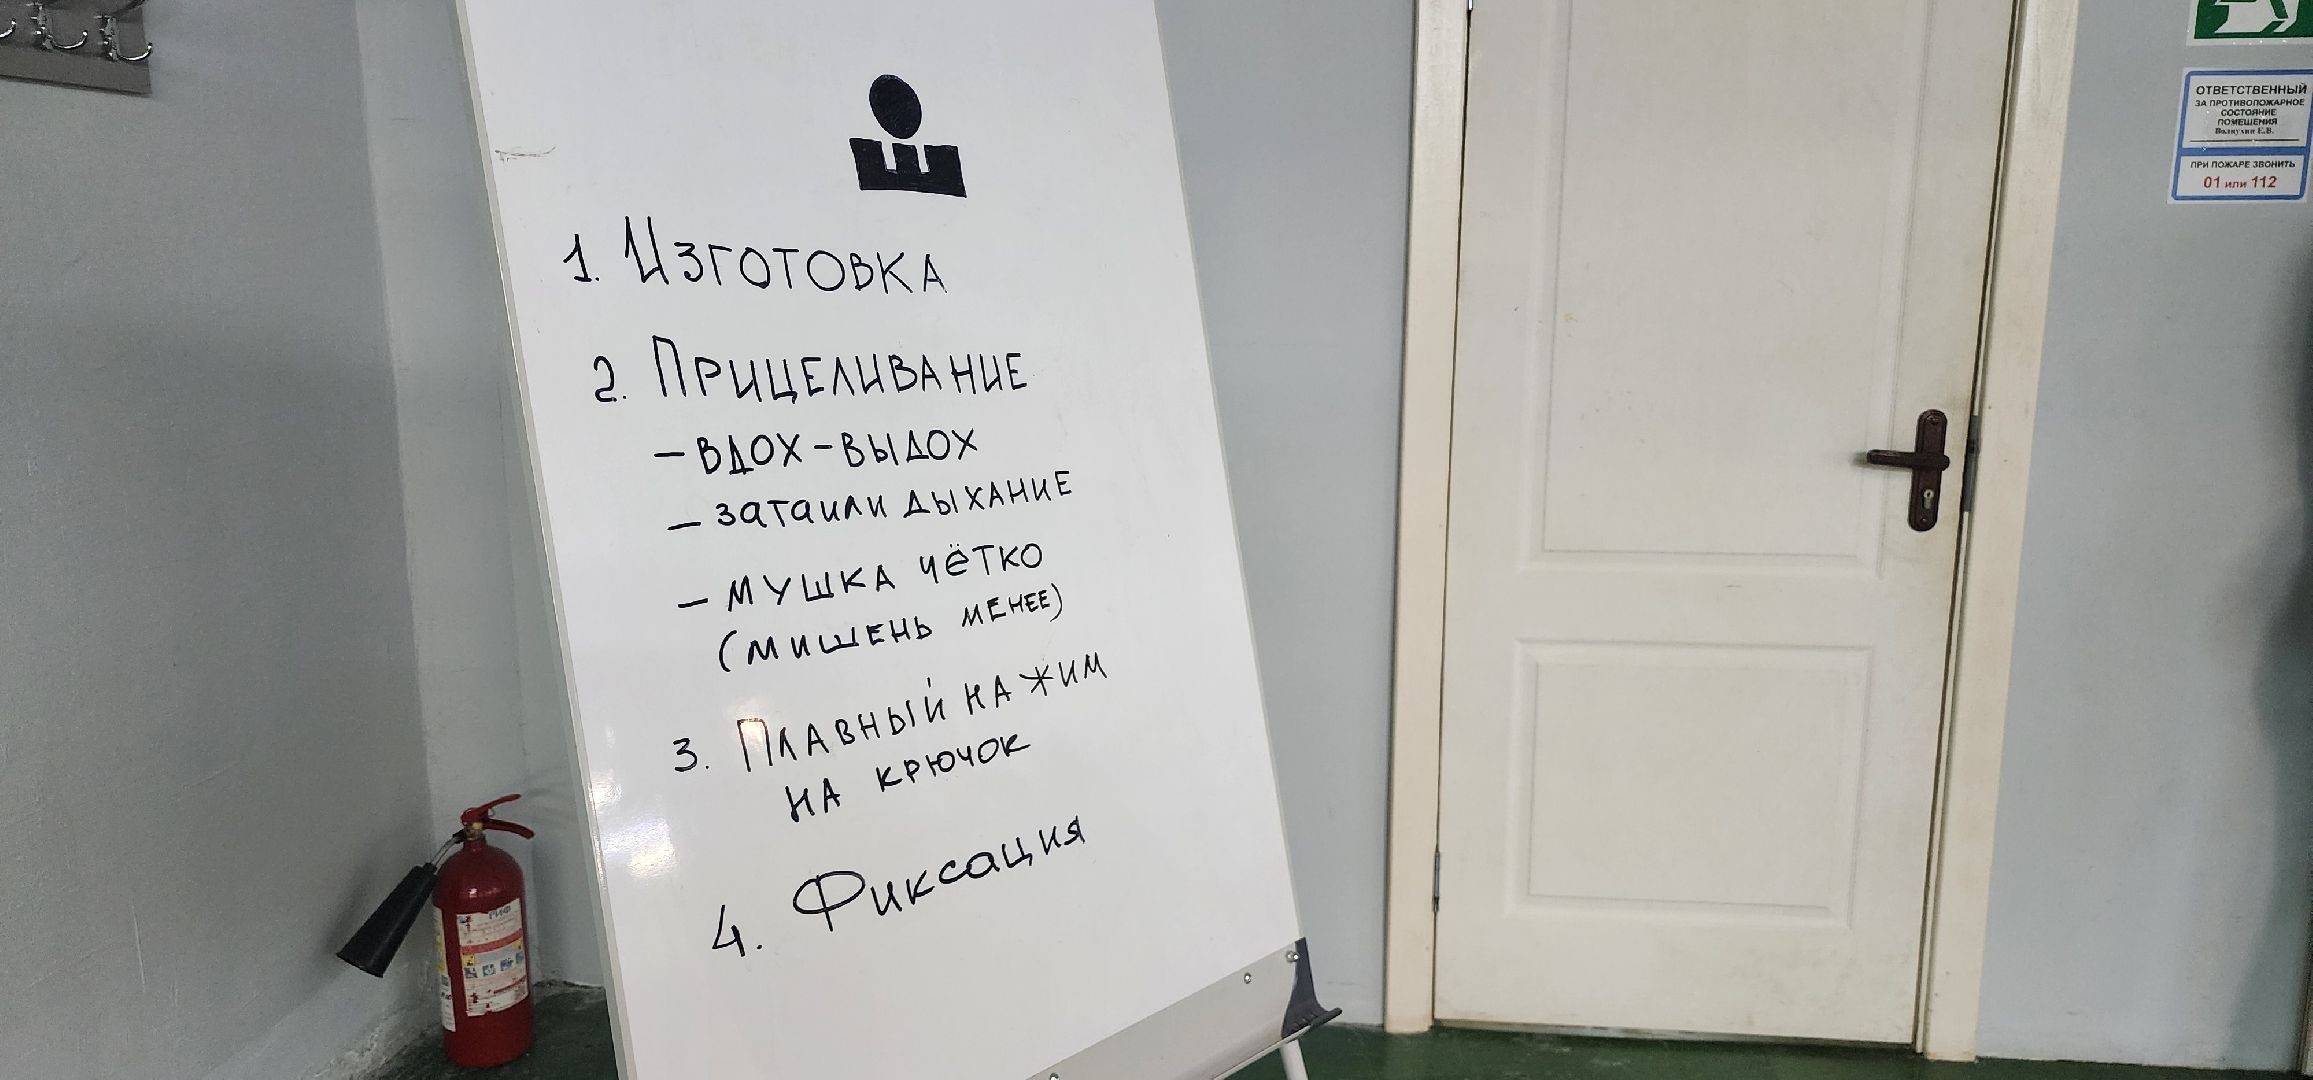 1. Изготовка
2. Прицеливание
– вдох - выдох
– затаили дыхание
– мушка чётко
(мишень менее)
3. Плавный нажим
на крючок
4. Фиксация
ОТВЕТСТВЕННЫЙ
ЗА ПРОТИВОПОЖАРНОЕ
СОСТОЯНИЕ
ПОМЕЩЕНИЯ
ПРИ ПОЖАРЕ ЗВОНИТЬ
01 или 112
РИФ